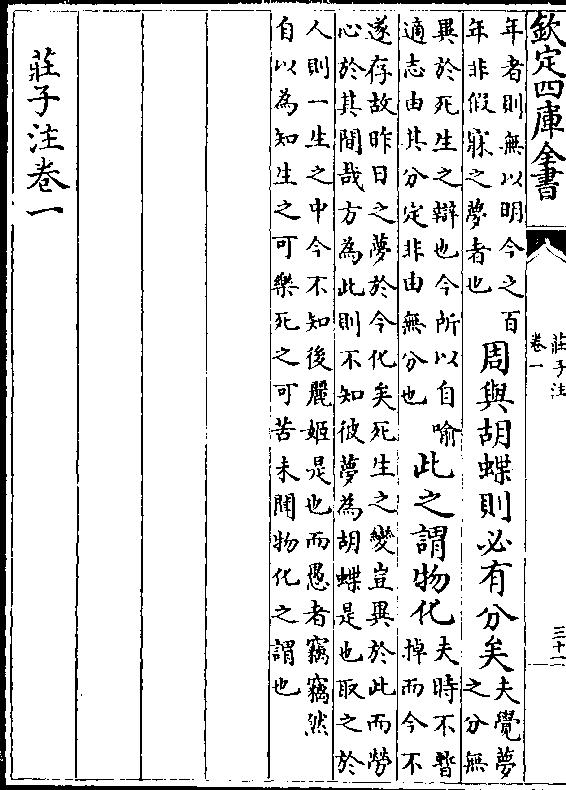 欽定四庫全書
莊子注
卷一
三十二
年者則無以明今之百
年非假寐之夢者也
周與胡蝶則必有分矣
夫覺夢
之分無
異於死生之辯也今所以自喻
適志由其分定非由無分也
此之謂物化
夫時不暫
掉而今不
遂存故昨日之夢於今化矣死生之變豈異於此而勞
心於其間哉方為此則不知彼夢為胡蝶是也取之於
人則一生之中今不知後麗姬是也而愚者竊竊然
自以為知生之可樂死之可苦未聞物化之謂也
莊子注卷一